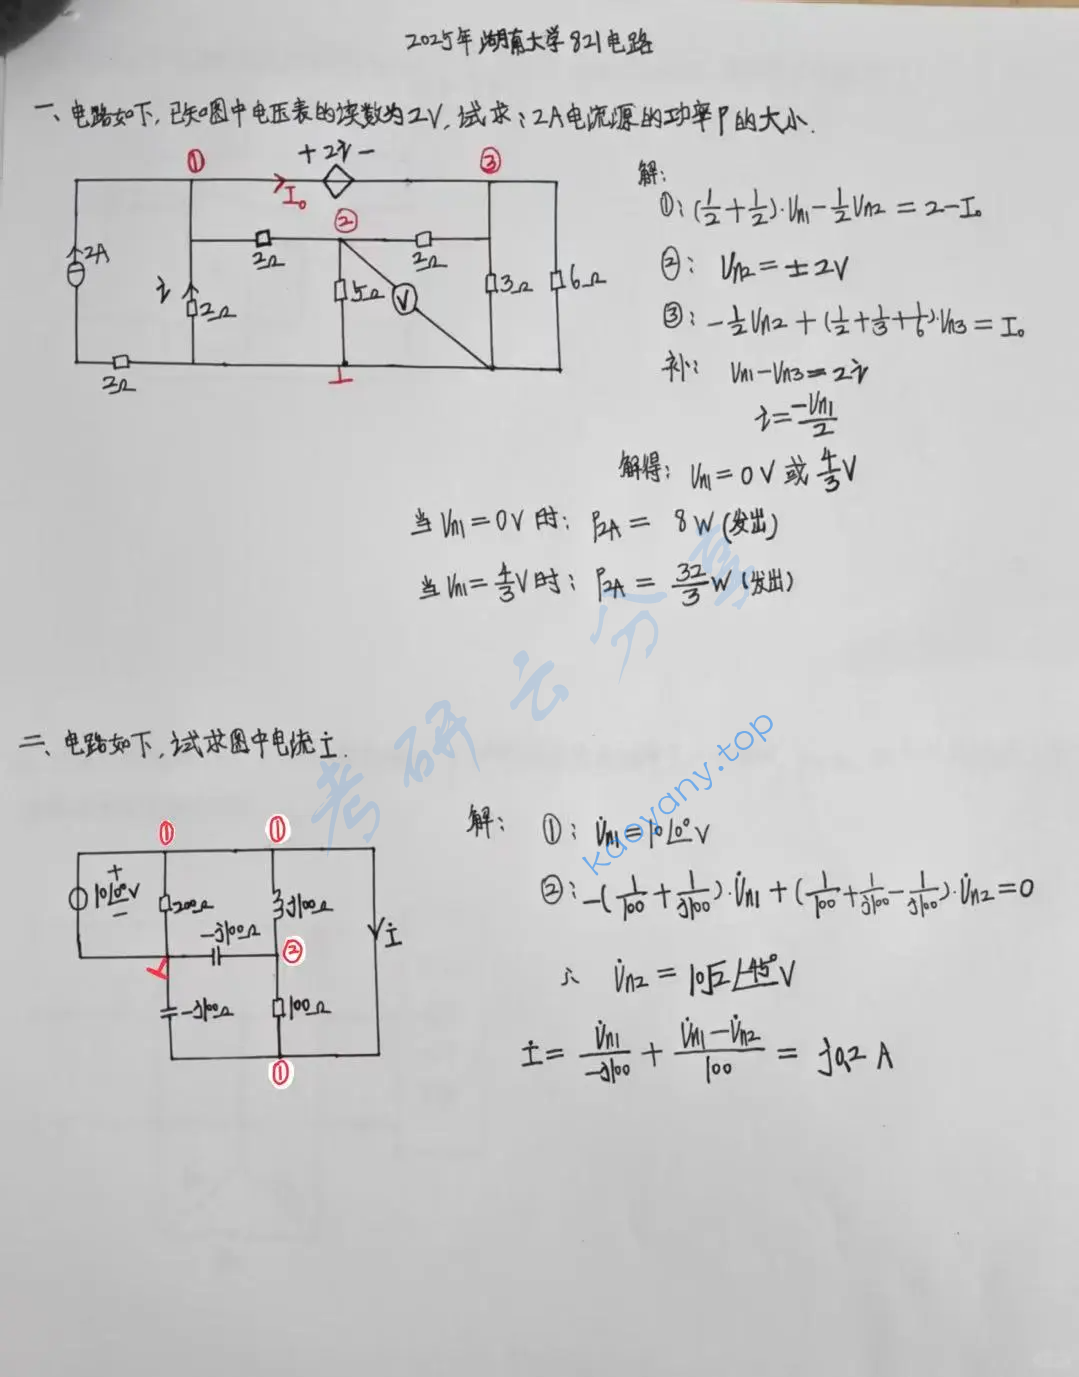 2025年湖南大学821电路
一、电路如下,已知图中电压表的读数为2V,试求:2A电流源的功率P的大小.
① + 2i - ③
I₀
②
2A
2Ω
2Ω
i
2Ω
5Ω
V
3Ω
6Ω
2Ω
解:
①: (1/2+1/2)·Un1-1/2Un2=2-I₀
②: Un2=±2V
③: -1/2Un2+(1/2+1/3+1/6)·Un3=I₀
补: Un1-Un3=2i
i=-Un1/2
解得: Un1=0V或4/3V
当Un1=0V时: P2A= 8W(发出)
当Un1=4/3V时: P2A= 32/3W(发出)
考研云分享
kaoyany.top
二、电路如下,试求图中电流İ.
① ①
+
10∠0°V
-
200Ω
j100Ω
-j100Ω
②
İ
-j100Ω
100Ω
①
解: ①: U̇n1=10∠0°V
②: -(1/100+1/j100)·U̇n1+(1/100+1/j100-1/j100)·U̇n2=0
∴ U̇n2=10√2∠-45°V
İ= U̇n1/-j100 + (U̇n1-U̇n2)/100 = j0.2 A